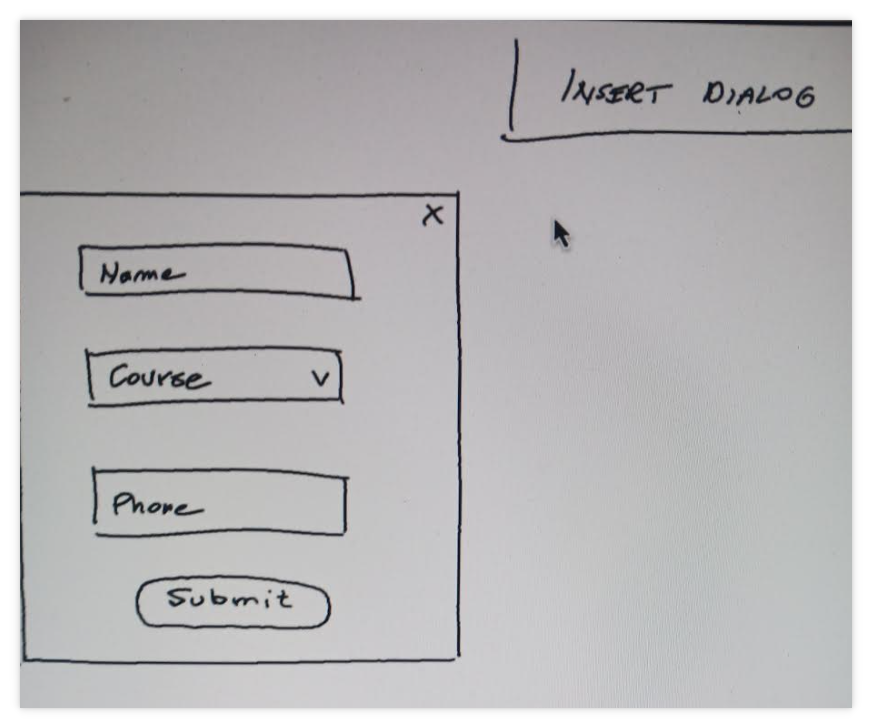 INSERT DIALOG
X
Name
Course V
Phone
Submit